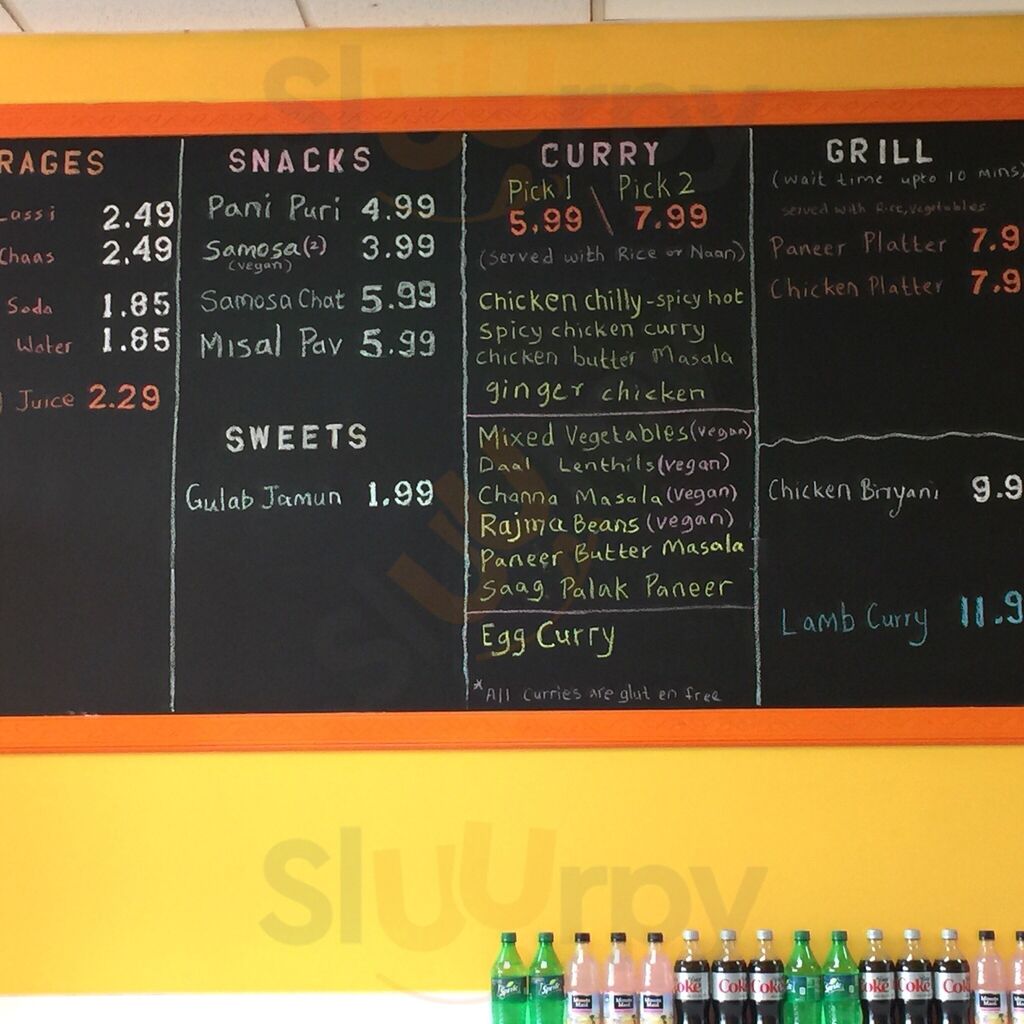 Sluurpy
RAGES
Lassi 2.49
Chaas 2.49
Soda 1.85
Water 1.85
Juice 2.29
SNACKS
Pani Puri 4.99
Samosa (2) 3.99
(vegan)
Samosa Chat 5.99
Misal Pav 5.99
SWEETS
Gulab Jamun 1.99
CURRY
Pick 1 \ Pick 2
5.99 \ 7.99
(Served with Rice or Naan)
Chicken chilly-spicy hot
Spicy chicken curry
chicken butter Masala
ginger chicken
Mixed Vegetables (vegan)
Daal Lenthils (vegan)
Channa Masala (vegan)
Rajma Beans (vegan)
Paneer Butter Masala
Saag Palak Paneer
Egg Curry
*All Curries are gluten free
GRILL
(wait time upto 10 mins)
served with Rice, vegetables
Paneer Platter 7.9
Chicken Platter 7.9
Chicken Biryani 9.9
Lamb Curry 11.9
Sluurpy
Sprite
Sprite
Minute Maid
Minute Maid
Minute Maid
Coke
Coke
Coke
Coke
Coke
Coke
Minute Maid